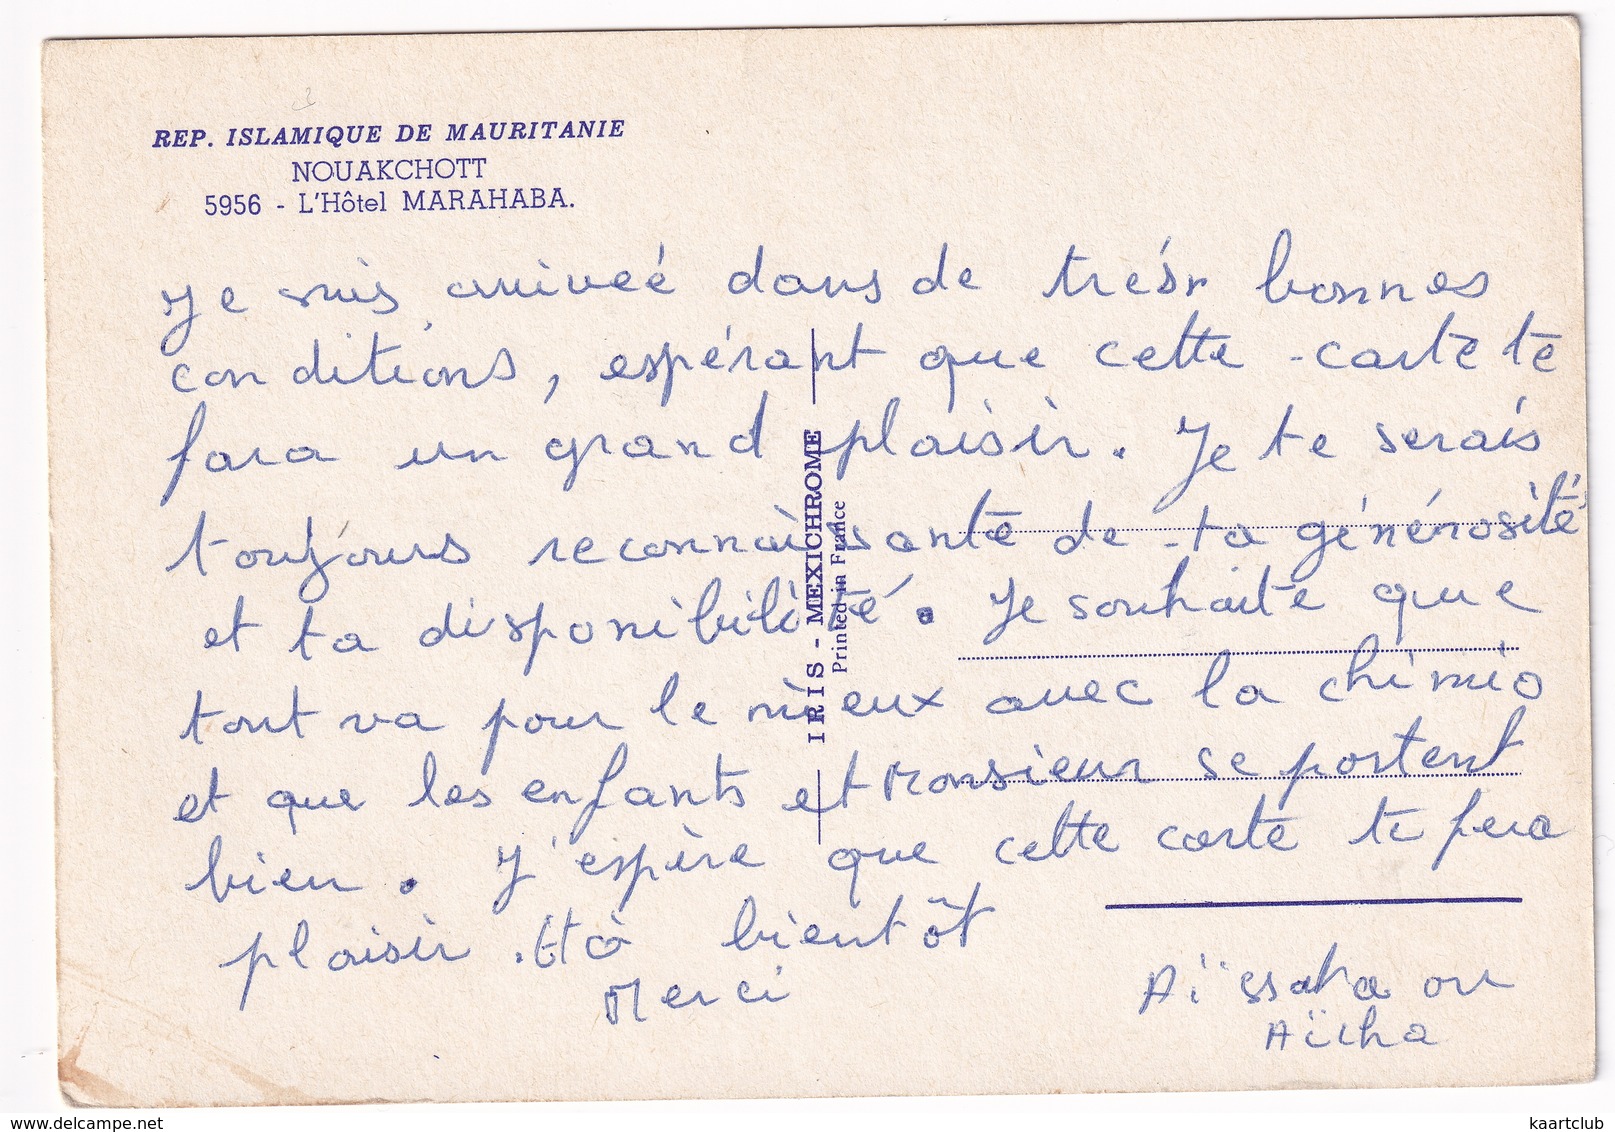 REP. ISLAMIQUE DE MAURITANIE
NOUAKCHOTT
5956 - L'Hôtel MARAHABA.
Je suis arriveé dans de trés bonnes
conditions, espérant que cette carte te
fara un grand plaisir. Je te serais
toujours reconnaissante de ta générosité
et ta disponibilité. Je souhaite que
tout va pour le mieux avec la chimio
et que les enfants et Monsieur se portent
bien. J'espère que cette carte te fera
plaisir. à bientôt
Merci
Aïssata ou
Aïcha
IRIS - MEXICHROME
Printed in France
www.delcampe.net
kaartclub